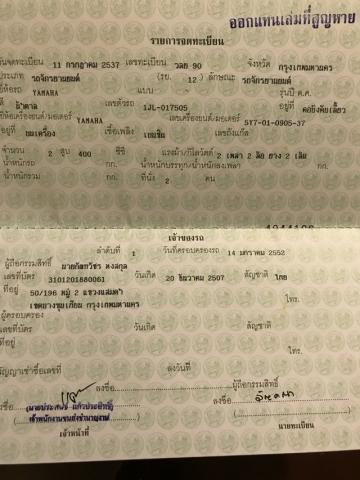 ออกแทนเล่มที่สูญหาย
รายการจดทะเบียน
วันจดทะเบียน 11 กรกฎาคม 2537 เลขทะเบียน วลย 90 จังหวัด กรุงเทพมหานคร
ประเภท รถจักรยานยนต์ (รย. 12 ) ลักษณะ รถจักรยานยนต์
ยี่ห้อรถ YAMAHA แบบ - รุ่นปี ค.ศ.
สี น้ำตาล เลขตัวรถ 1JL-017505 อยู่ที่ คอยึดพับเลี้ยว
ยี่ห้อเครื่องยนต์/มอเตอร์ YAMAHA เลขเครื่องยนต์/มอเตอร์ 5Y7-01-0905-37
อยู่ที่ บนเครื่อง เชื้อเพลิง เบนซิน เลขถังแก๊ส
จำนวน 2 สูบ 400 ซีซี แรงม้า/กิโลวัตต์ 2 เพลา 2 ล้อ ยาง 2 เส้น
น้ำหนักรถ กก. น้ำหนักบรรทุก/น้ำหนักลงเพลา กก.
น้ำหนักรวม กก. ที่นั่ง 2 คน
เจ้าของรถ
ลำดับที่ 1 วันที่ครอบครองรถ 14 มกราคม 2552
ผู้ถือกรรมสิทธิ์ นายกัลทวัชร หงสกุล
เลขที่บัตร 3101201880061 วันเกิด 20 ธันวาคม 2507 สัญชาติ ไทย
ที่อยู่ 50/196 หมู่ 2 แขวงแสมดำ
เขตบางขุนเทียน กรุงเทพมหานคร โทร.
ผู้ครอบครอง
เลขที่บัตร วันเกิด สัญชาติ
ที่อยู่ โทร.
สัญญาเช่าซื้อเลขที่ ลงวันที่
ลงชื่อ ผู้ถือกรรมสิทธิ์
ลงชื่อ ลงชื่อ
เจ้าพนักงานขนส่งชำนาญงาน
เจ้าหน้าที่ นายทะเบียน